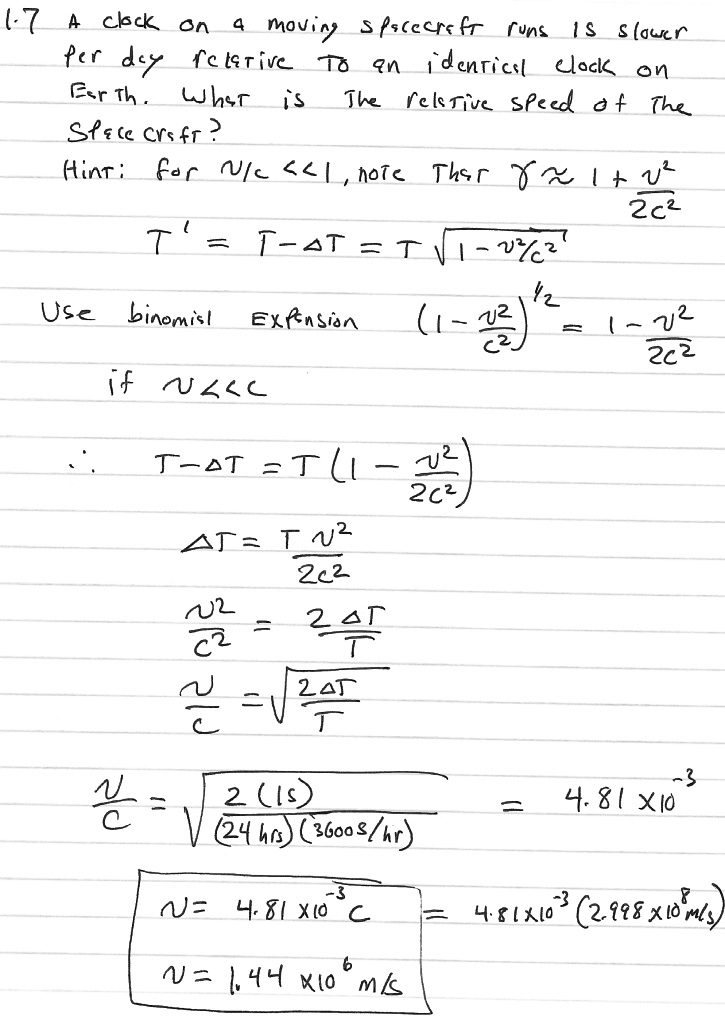 1.7 A clock on a moving spacecraft runs 1s slower
per day relative to an identical clock on
Earth. What is the relative speed of the
Spacecraft?
Hint: for v/c <<1, note that γ ≈ 1 + v²/2c²
T' = T-ΔT = T √(1-v²/c²)
Use binomial Expansion (1 - v²/c²)^1/2 = 1 - v²/2c²
if v<<c
∴ T-ΔT = T(1 - v²/2c²)
ΔT = Tv²/2c²
v²/c² = 2ΔT/T
v/c = √(2ΔT/T)
v/c = √(2(1s)/(24 hrs)(3600s/hr)) = 4.81 x10⁻³
v= 4.81 x10⁻³ c = 4.81x10⁻³ (2.998x10⁸ m/s)
v = 1.44 x10⁶ m/s